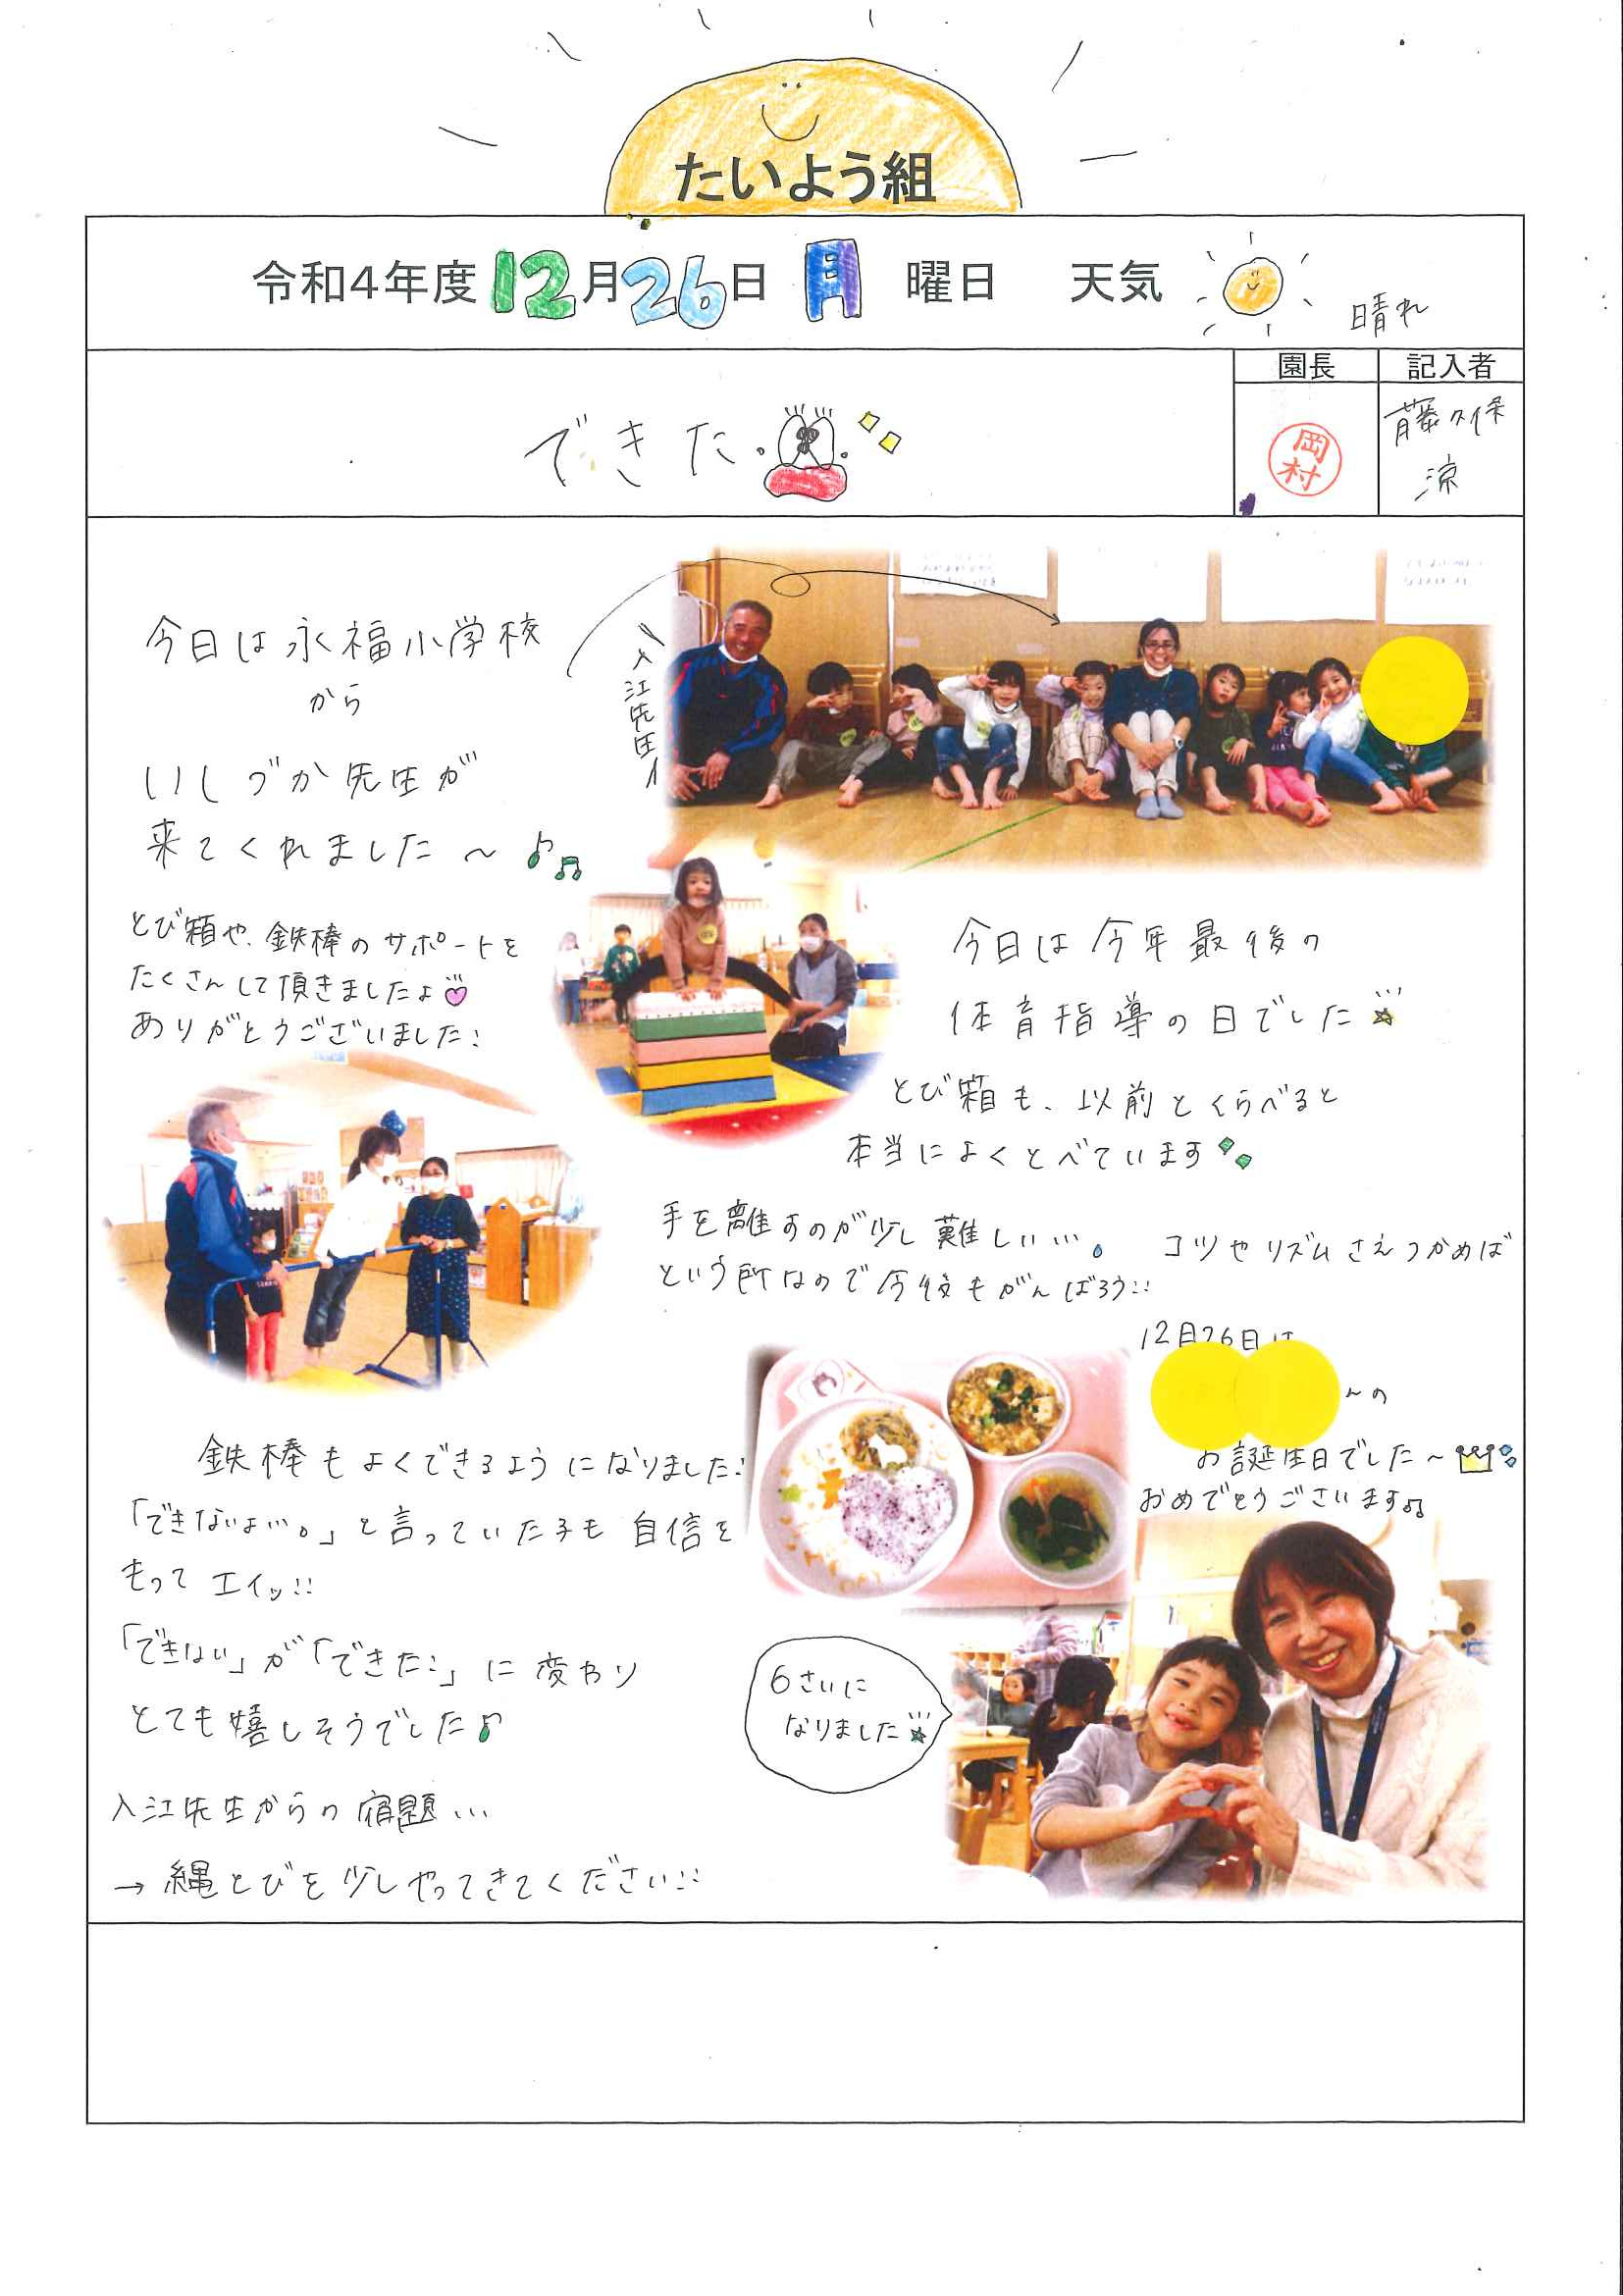 たいよう組
令和4年度 12月26日 月 曜日 天気 晴れ
園長 記入者
できた
岡村
藤久保
涼
今日は永福小学校
から
いしづか先生が
来てくれました～♪♫
入江先生
とび箱や、鉄棒のサポートを
たくさんして頂きましたよ♡
ありがとうございました!
今日は今年最後の
体育指導の日でした☆
とび箱も、以前とくらべると
本当によくとべています
手を離すのが少し難しい…。 コツやリズムさえつかめば
という所なので今後もがんばろう!!
12月26日は
～の
お誕生日でした～
おめでとうございます♫
鉄棒もよくできるようになりました!
「できないよ…。」と言っていた子も自信を
もってエイッ!!
「できない」が「できた!」に変わり
とても嬉しそうでした♪
6さいに
なりました☆
入江先生からの宿題…
→縄とびを少しやってきてください!!